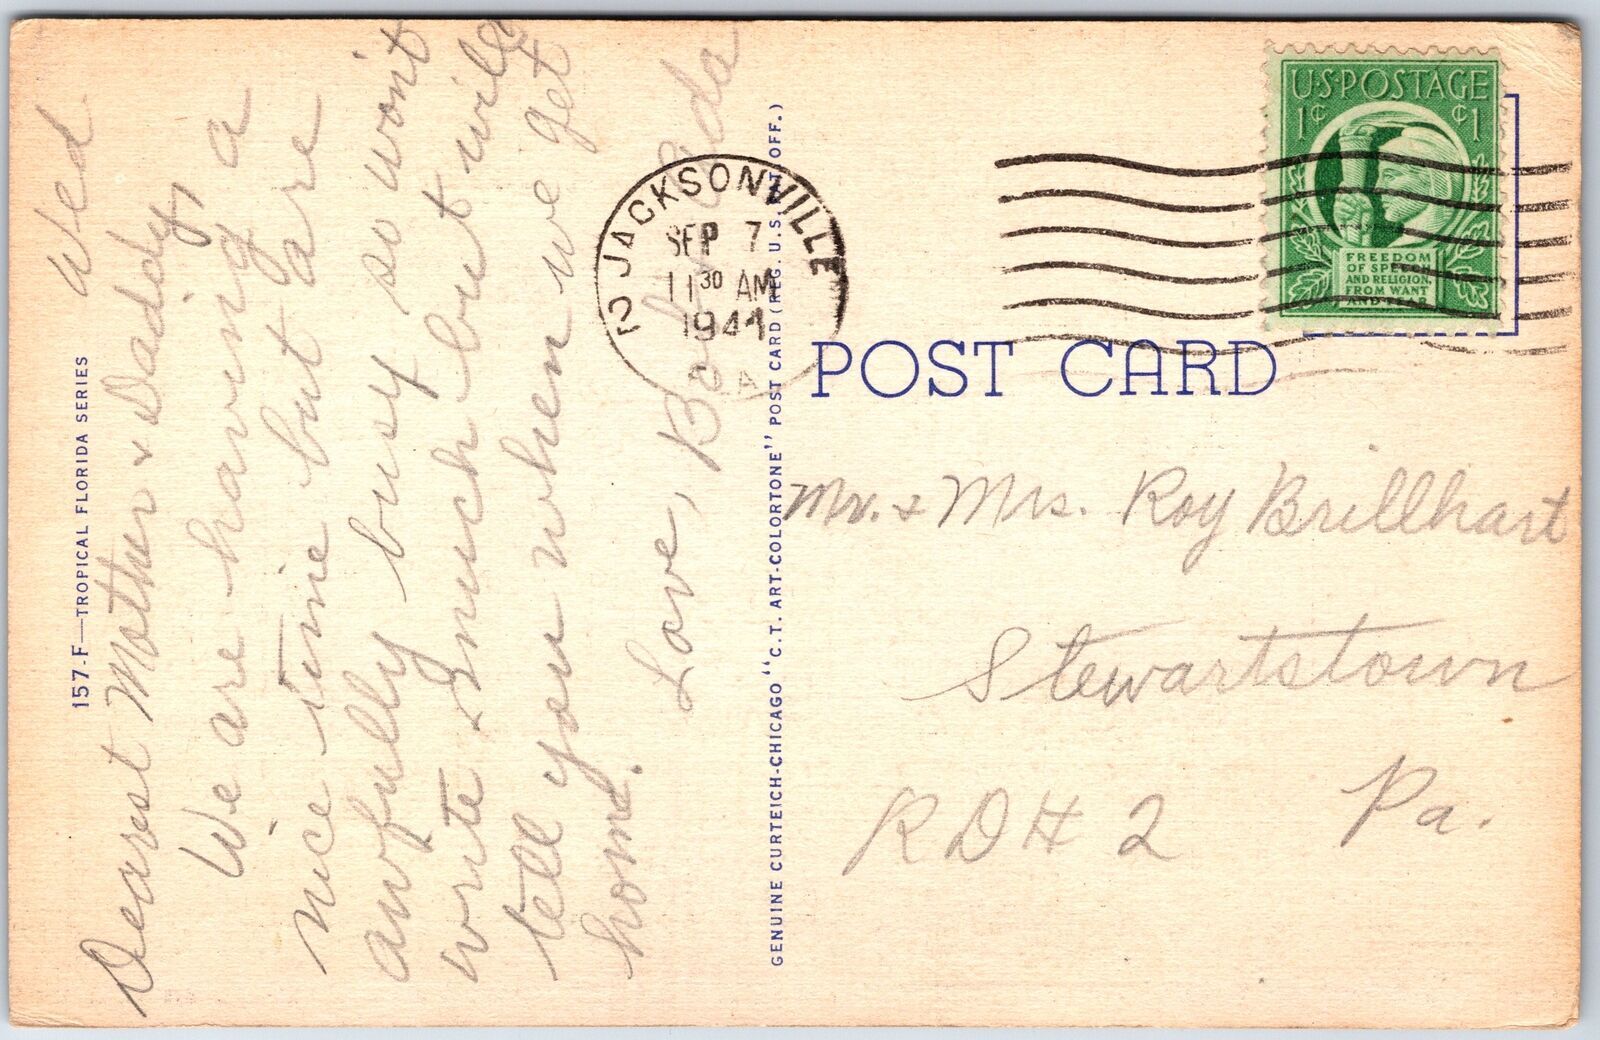 157-F—TROPICAL FLORIDA SERIES
Wed
Dearest Mother & Daddy,
We are having a
nice time but are
awfully busy so won't
write much but will
tell you when we get
home.
Love, Bob & Ida
GENUINE CURTEICH-CHICAGO "C. T. ART-COLORTONE" POST CARD (REG. U. S. PAT. OFF.)
JACKSONVILLE
SEP 7
11 30 AM
1944
U·S·POSTAGE
1¢ ¢1
FREEDOM
OF SPEECH
AND RELIGION,
FROM WANT
AND FEAR
POST CARD
Mr. & Mrs. Roy Brillhart
Stewartstown
Pa.
RD# 2